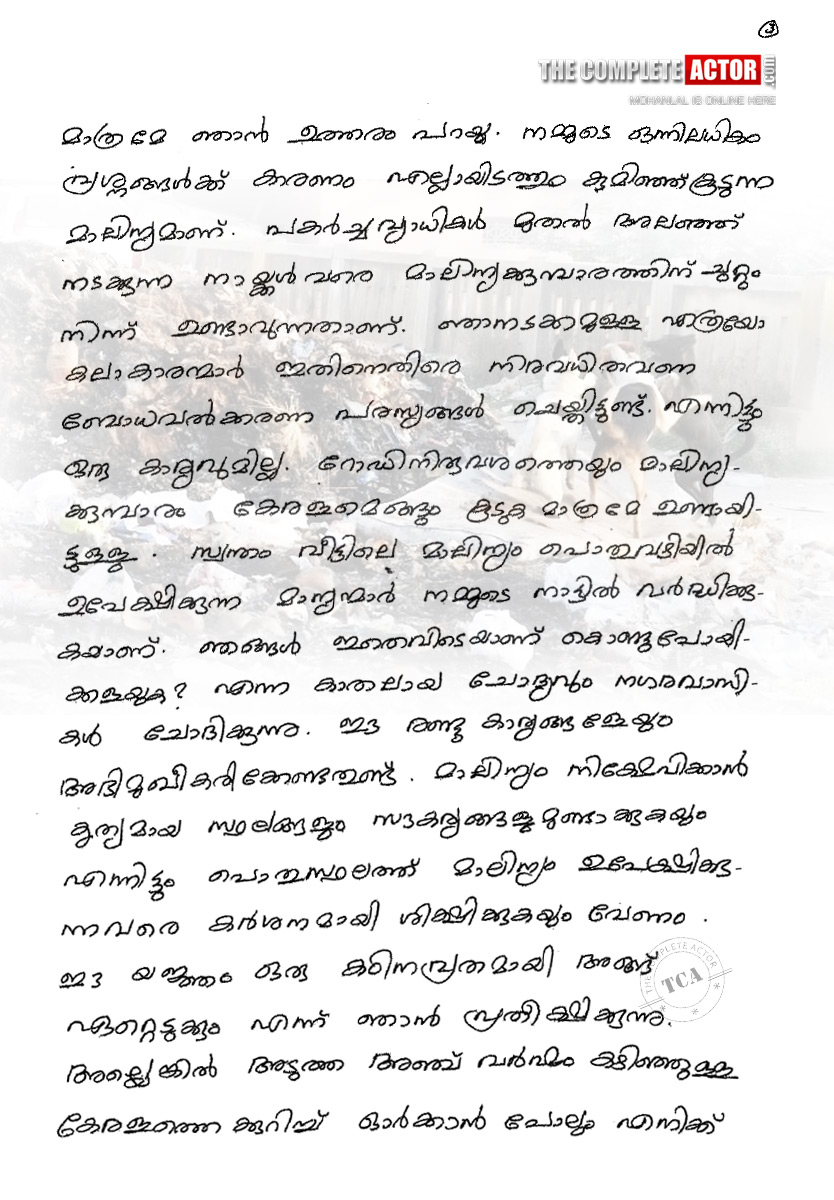 3
THE COMPLETE ACTOR .com
MOHANLAL IS ONLINE HERE
മാത്രമേ ഞാൻ ഉത്തരം പറയൂ. നമ്മുടെ ഒന്നിലധികം
പ്രശ്നങ്ങൾക്ക് കാരണം എല്ലായിടത്തും കുമിഞ്ഞ്കൂടുന്ന
മാലിന്യമാണ്. പകർച്ചവ്യാധികൾ മുതൽ അലഞ്ഞ്
നടക്കുന്ന നായ്ക്കൾ വരെ മാലിന്യക്കുമ്പാരത്തിന് ചുറ്റും
നിന്ന് ഉണ്ടാവുന്നതാണ്. ഞാനടക്കമുള്ള എത്രയോ
കലാകാരന്മാർ ഇതിനെതിരെ നിരവധിതവണ
ബോധവൽക്കരണ പരസ്യങ്ങൾ ചെയ്തിട്ടുണ്ട്. എന്നിട്ടും
ഒരു കാര്യവുമില്ല. റോഡിനിരുവശത്തെയും മാലിന്യ-
ക്കുമ്പാരം കേരളമെങ്ങും കൂടുക മാത്രമേ ഉണ്ടായി-
ട്ടുള്ളൂ. സ്വന്തം വീട്ടിലെ മാലിന്യം പൊതുവഴിയിൽ
ഉപേക്ഷിക്കുന്ന മാന്യന്മാർ നമ്മുടെ നാട്ടിൽ വർദ്ധിക്കു-
കയാണ്. ഞങ്ങൾ ഇതെവിടെയാണ് കൊണ്ടുപോയി-
ക്കളയുക? എന്ന കാതലായ ചോദ്യവും നഗരവാസി-
കൾ ചോദിക്കുന്നു. ഈ രണ്ടു കാര്യങ്ങളേയും
അഭിമുഖീകരിക്കേണ്ടതുണ്ട്. മാലിന്യം നിക്ഷേപിക്കാൻ
കൃത്യമായ സ്ഥലങ്ങളും സൗകര്യങ്ങളുമുണ്ടാക്കുകയും
എന്നിട്ടും പൊതുസ്ഥലത്ത് മാലിന്യം ഉപേക്ഷിക്കു-
ന്നവരെ കർശനമായി ശിക്ഷിക്കുകയും വേണം.
ഈ യജ്ഞം ഒരു കഠിനവ്രതമായി അങ്ങ്
ഏറ്റെടുക്കും എന്ന് ഞാൻ പ്രതീക്ഷിക്കുന്നു.
അല്ലെങ്കിൽ അടുത്ത അഞ്ച് വർഷം കഴിഞ്ഞുള്ള
കേരളത്തെക്കുറിച്ച് ഓർക്കാൻ പോലും എനിക്ക്
THE COMPLETE ACTOR
TCA